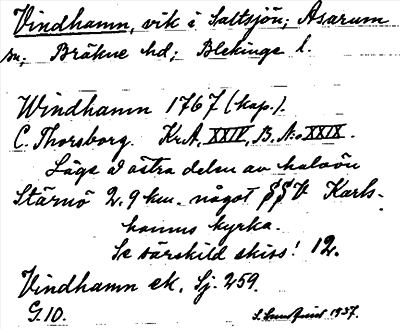 Vindhamn, vik i Saltsjön; Asarum
sn; Bräkne hd; Blekinge l.
Windhamn 1767 (kap.).
C. Thorsborg. Kr.A, XXIV, B. No XXIX.
Läge å östra delen av halvön
Stärnö 2.9 km. något SSV Karls-
hamns kyrka.
Se särskild skiss! 12.
Vindhamn ek. Sj. 259.
G.10. 1937.